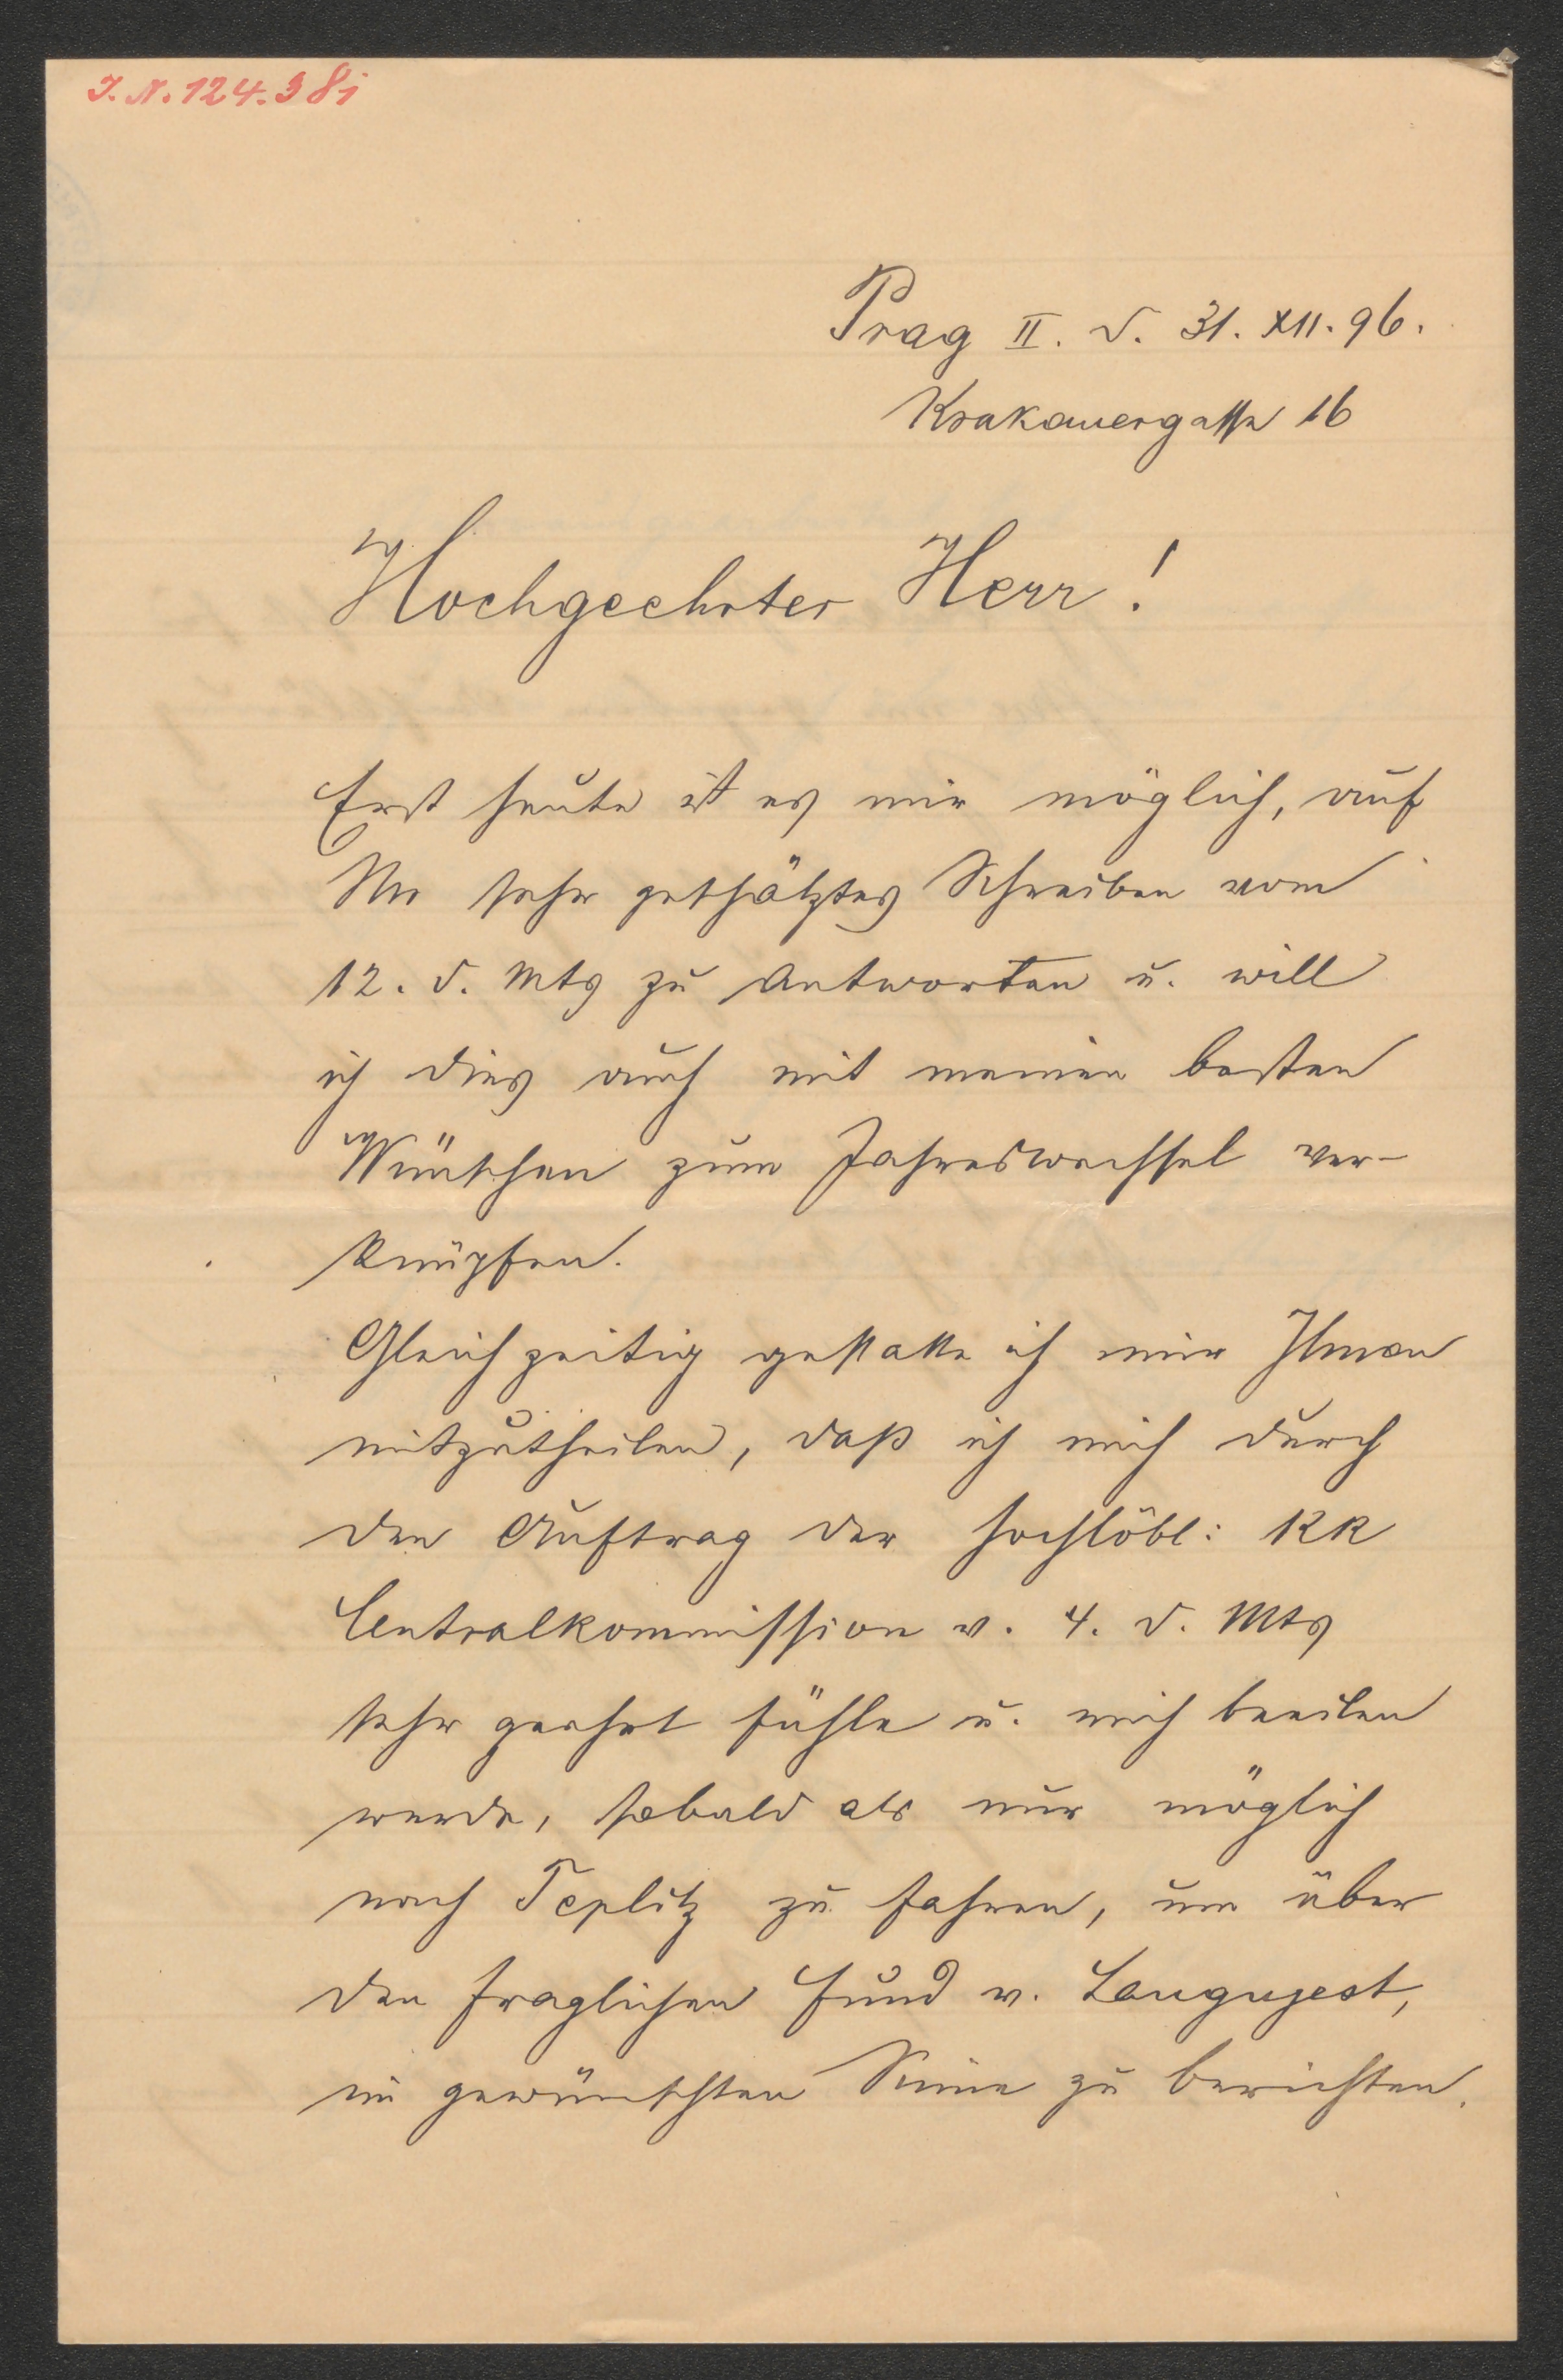 J.N. 124.381
Prag II. d. 31. XII. 96.
Krakauergasse 16
Hochgeehrter Herr!
Erst heute ist es mir möglich, auf
Ihr sehr geschätztes Schreiben vom
12. d. Mts zu antworten u. will
ich dies auch mit meinen besten
Wünschen zum Jahreswechsel ver-
knüpfen.
Gleichzeitig gestatte ich mir Ihnen
mitzutheilen, daß ich mich durch
den Auftrag der hochlöbl: KK
Centralkommission v. 4. d. Mts
sehr geehrt fühle u. mich beeilen
werde, sobald als nur möglich
nach Teplitz zu fahren, um über
den fraglichen Fund v. Langugest,
im gewünschten Sinne zu berichten.